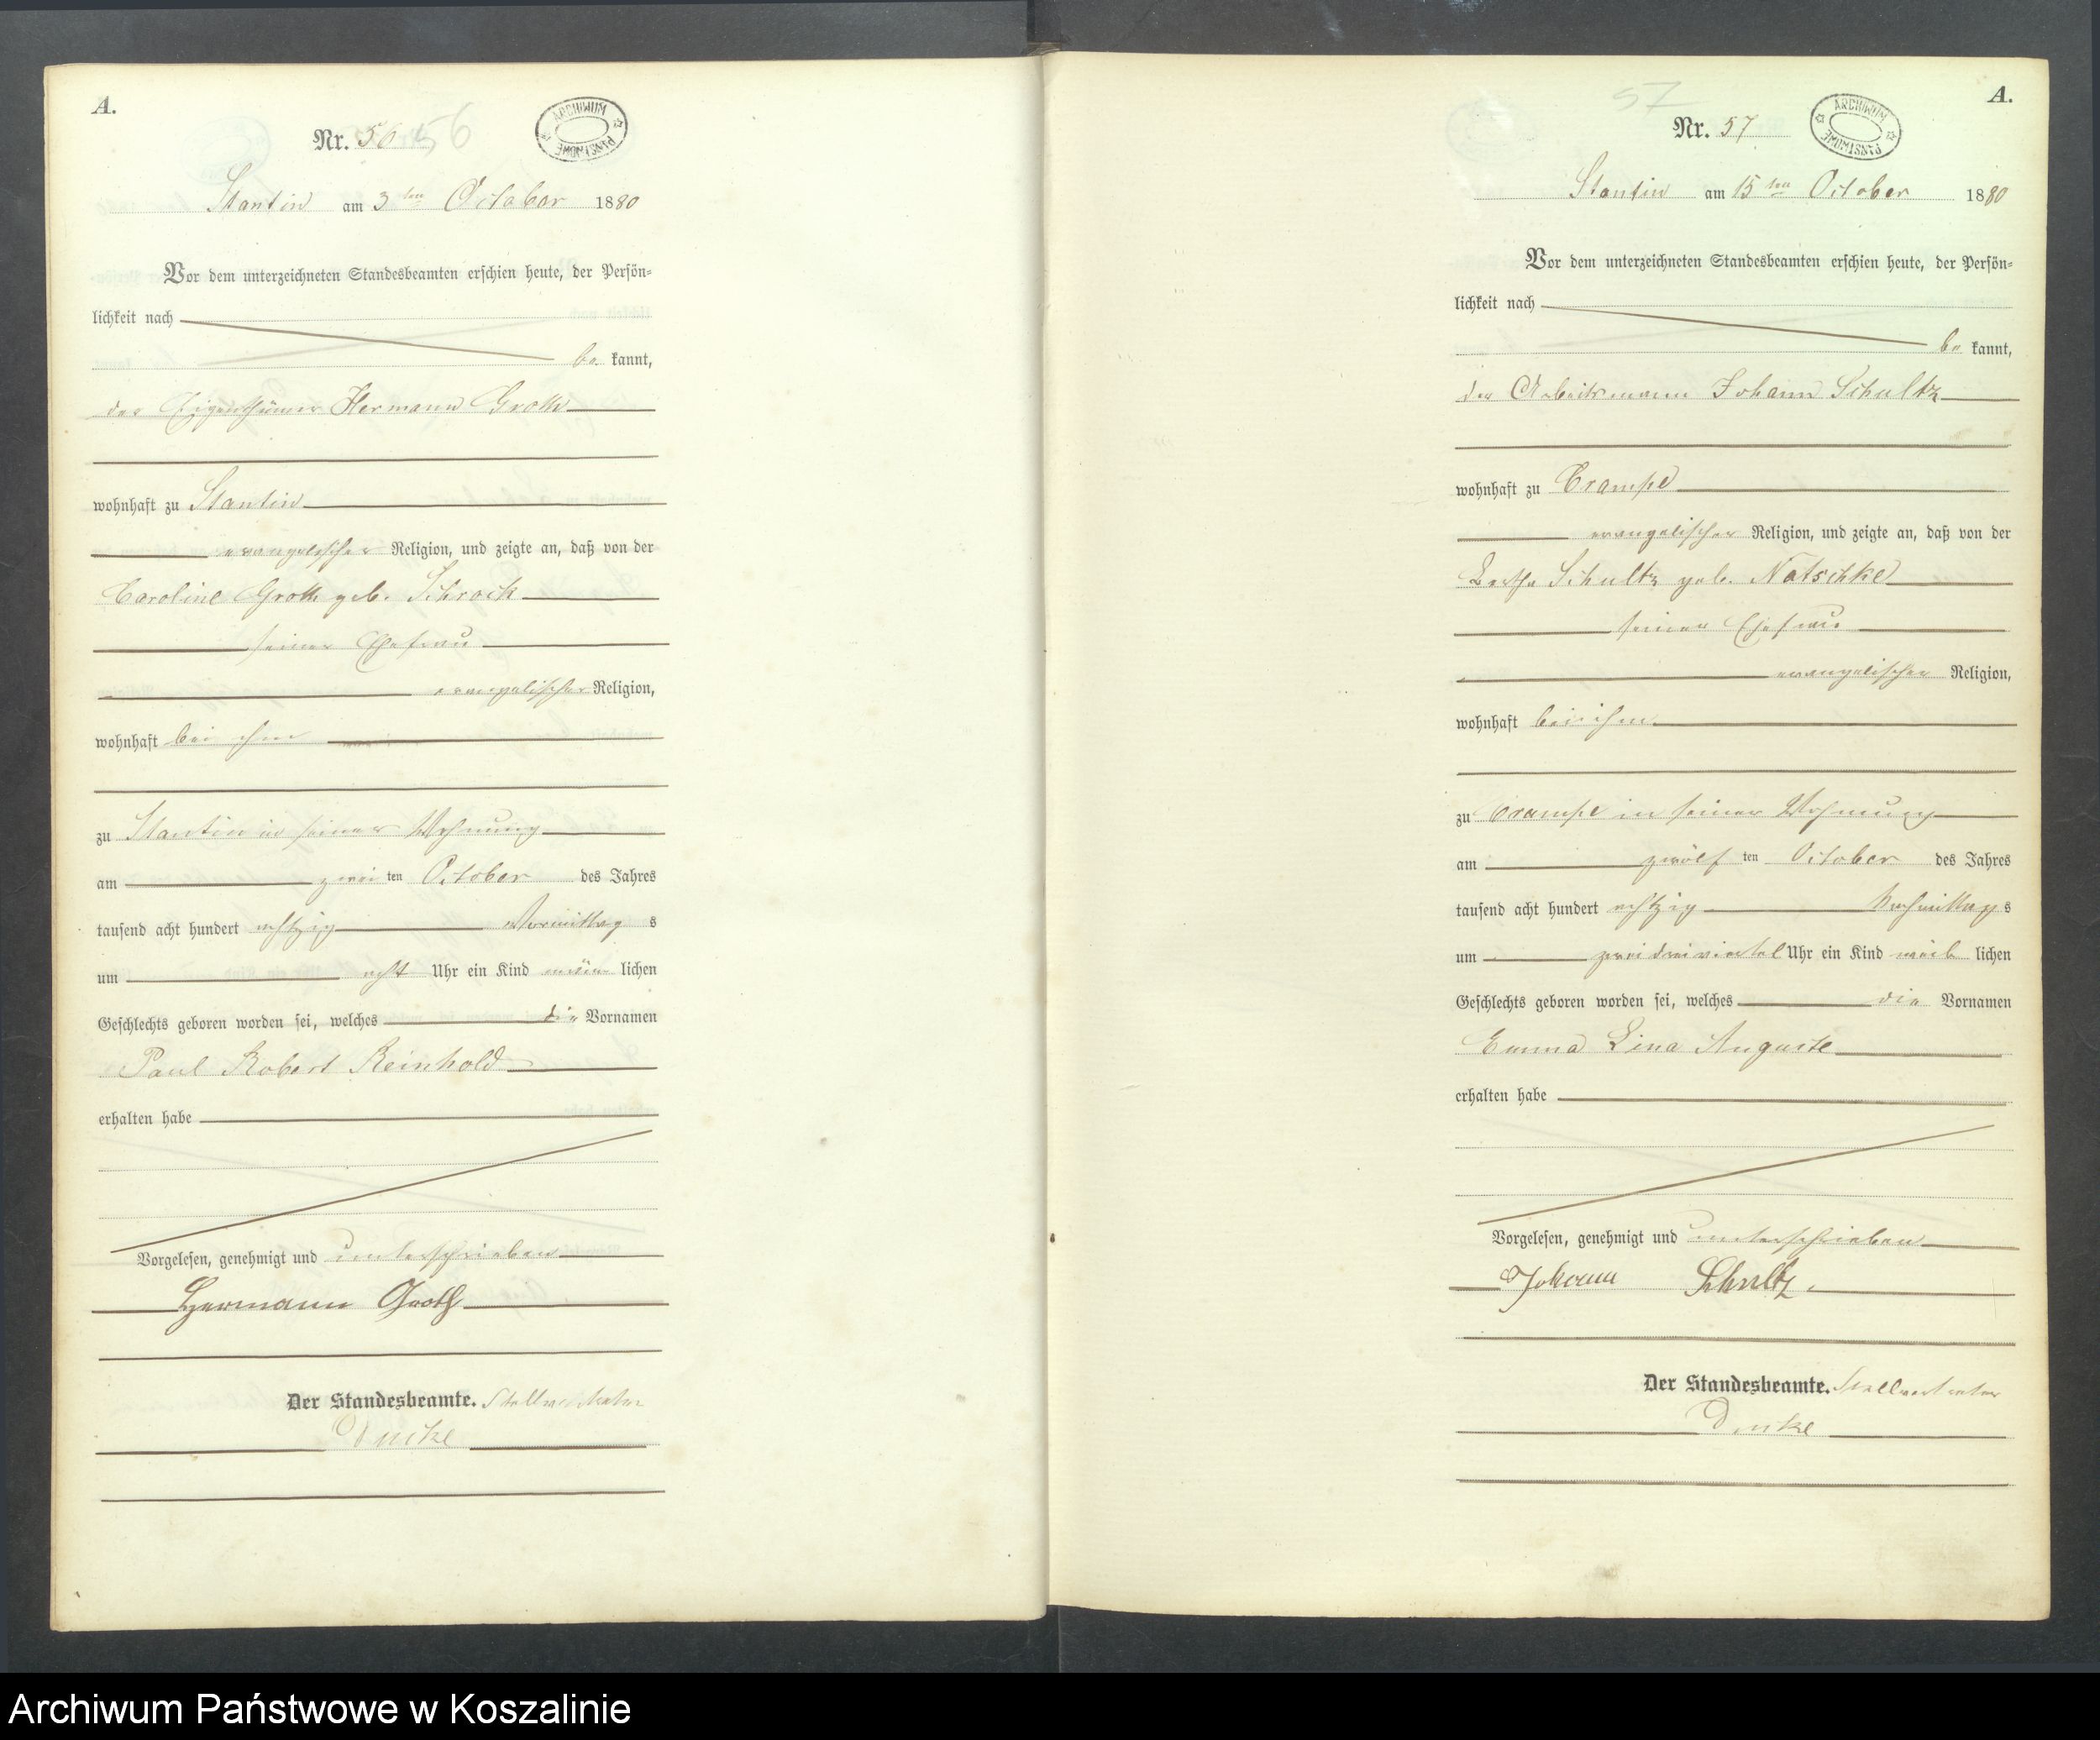 A.
Nr. 56 56
ARCHIWUM PAŃSTWOWE
Stantin am 3ten October 1880
Vor dem unterzeichneten Standesbeamten erschien heute, der Persön=
lichkeit nach
be kannt,
der Eigenthümer Hermann Groth
wohnhaft zu Stantin
evangelischer Religion, und zeigte an, daß von der
Caroline Groth geb. Schrock
seiner Ehefrau
evangelischer Religion,
wohnhaft bei ihm
zu Stantin in seiner Wohnung
am zwei ten October des Jahres
tausend acht hundert achtzig Vormittag s
um acht Uhr ein Kind männ lichen
Geschlechts geboren worden sei, welches die Vornamen
Paul Robert Reinhold
erhalten habe
Vorgelesen, genehmigt und unterschrieben
Hermann Groth
Der Standesbeamte. Stellvertreter
A.
57
Nr. 57
ARCHIWUM PAŃSTWOWE
Stantin am 15ten October 1880
Vor dem unterzeichneten Standesbeamten erschien heute, der Persön=
lichkeit nach
be kannt,
der Arbeitsmann Johann Schultz
wohnhaft zu Crampe
evangelischer Religion, und zeigte an, daß von der
Bertha Schultz geb. Natschke
seiner Ehefrau
evangelischer Religion,
wohnhaft bei ihm
zu Crampe in seiner Wohnung
am zwölf ten October des Jahres
tausend acht hundert achtzig Nachmittag s
um zwei dreiviertel Uhr ein Kind weib lichen
Geschlechts geboren worden sei, welches die Vornamen
Emma Lina Auguste
erhalten habe
Vorgelesen, genehmigt und unterschrieben
Johann Schultz
Der Standesbeamte. Stellvertreter
Archiwum Państwowe w Koszalinie